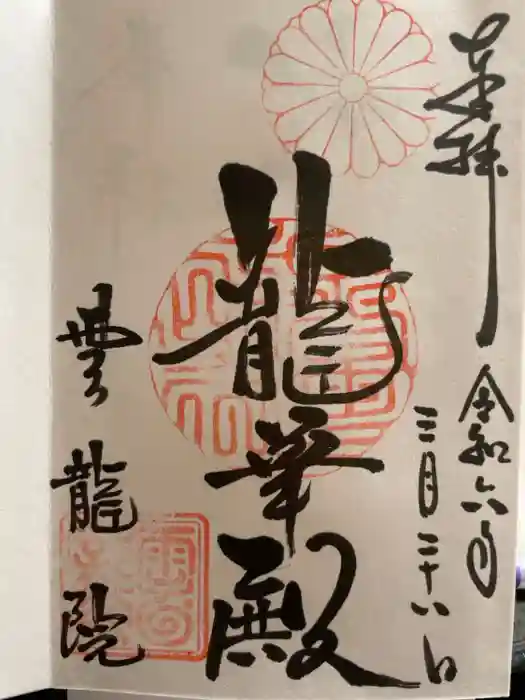 奉拝
令和六年
三月二十八日
龍華殿
雲龍院